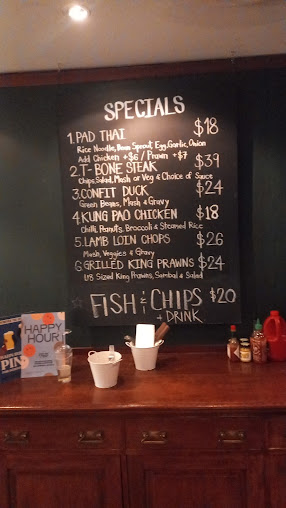 SPECIALS
1. PAD THAI $18
Rice Noodle, Bean Sprout, Egg, Garlic, Onion
Add Chicken +$6 / Prawn +$7
2. T-BONE STEAK $39
Chips, Salad, Mash or Veg & Choice of Sauce
3. CONFIT DUCK $24
Green Beans, Mash & Gravy
4. KUNG PAO CHICKEN $18
Chilli, Peanuts, Broccoli & Steamed Rice
5. LAMB LOIN CHOPS $26
Mash, Veggies & Gravy
6. GRILLED KING PRAWNS $24
Sized King Prawns, Sambal & Salad
FISH & CHIPS $20
+ DRINK
HAPPY
HOUR